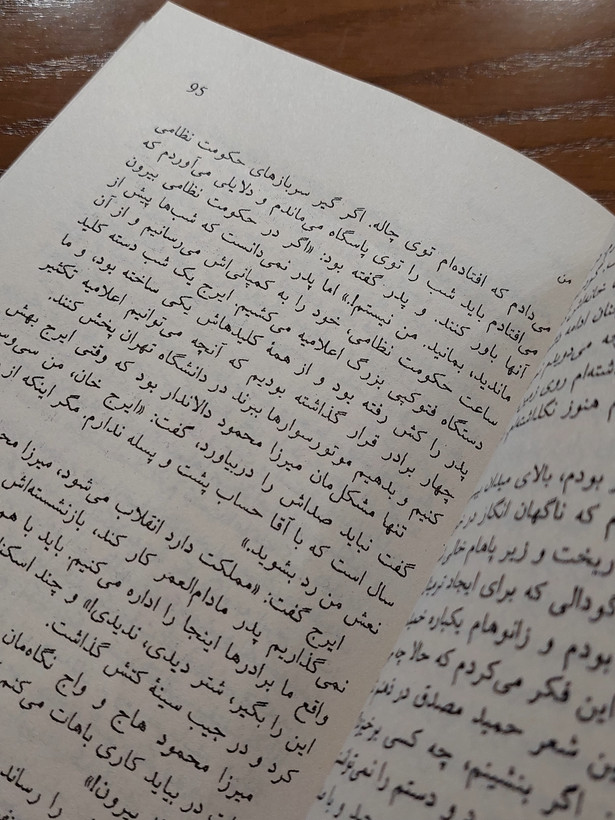 95
می‌دادم که افتاده‌ام توی چاله. اگر گیر سربازهای حکومت نظامی
می‌افتادم باید شب را توی پاسگاه می‌ماندم و دلایلی می‌آوردم که
آنها باور کنند. و پدر گفته بود: «اگر در حکومت نظامی بیرون
ماندید، بمانید. من نیستم!» اما پدر نمی‌دانست که شب‌ها پیش از
ساعت حکومت نظامی، خود را به کمپانی‌اش می‌رسانیم و از آن
دستگاه فتوکپی بزرگ اعلامیه می‌کشیم. ایرج یک شب دسته کلید
پدر را کش رفته بود و از همهٔ کلیدهاش یکی ساخته بود، و ما
چهار برادر قرار گذاشته بودیم که آنچه می‌توانیم اعلامیه تکثیر
کنیم و بدهیم موتورسوارها ببرند در دانشگاه تهران پخش کنند.
تنها مشکل‌مان میرزا محمود دالاندار بود که وقتی ایرج بهش
گفت نباید صداش را دربیاورد، گفت: «ایرج خان، من سی‌وسه
سال است که با آقا حساب پشت و پسله ندارم. مگر اینکه از
نعش من رد بشوید.»
ایرج گفت: «مملکت دارد انقلاب می‌شود، میرزا
نمی‌گذاریم پدر مادام‌العمر کار کند، بازنشسته‌اش
واقع ما برادرها اینجا را اداره می‌کنیم. باید با هم
این را بگیر، شتر دیدی، ندیدی!» و چند
کرد و در جیب سینهٔ کتش گذاشت.
میرزا محمود هاج و واج نگاه‌مان
در بیاید کاری باهات می‌کنم
بیرون!»
را رساند
من
هنوز
بودم، بالای
که ناگهان انگار در
ریخت و زیر پاهام
گودالی که برای ایجاد
بود و زانوهام یکباره
این فکر می‌کردم که حالا
شعر حمید مصدق در
اگر بنشینم، چه کسی
و دستم را